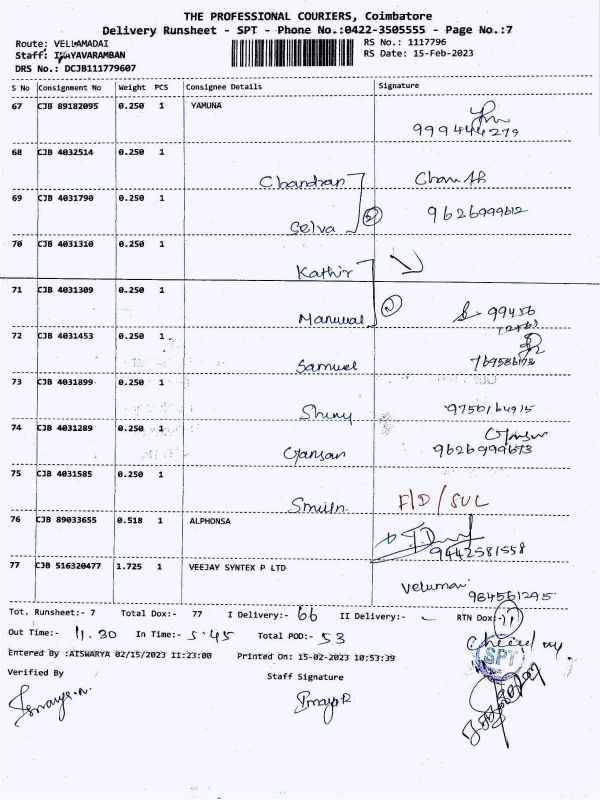 THE PROFESSIONAL COURIERS, Coimbatore
Delivery Runsheet - SPT - Phone No.:0422-3505555 - Page No.:7
Route: VELLAMADAI
RS No.: 1117796
Staff: IMAYAVARAMBAN
RS Date: 15-Feb-2023
DRS No.: DCJB111779607
S No Consignment No Weight PCS Consignee Details Signature
67 CJB 89182095 0.250 1 YAMUNA
68 CJB 4032514 0.250 1
Chandran
69 CJB 4031790 0.250 1 9626999612
Selva 2
70 CJB 4031310 0.250 1
Kathir
71 CJB 4031309 0.250 1
Manuval 2 99456
72 CJB 4031453 0.250 1
Samuel
73 CJB 4031899 0.250 1
Shiny
74 CJB 4031289 0.250 1
Gansan 9626999673
75 CJB 4031585 0.250 1
F/D/SVC
76 CJB 89033655 0.518 1 ALPHONSA
9442581558
77 CJB 516320477 1.725 1 VEEJAY SYNTEX P LTD
Velumani 984561295
Tot. Runsheet:- 7 Total Dox:- 77 I Delivery:- 66 II Delivery:- - RTN Dox:- 11
Out Time:- 11.30 In Time:- 5.45 Total POD:- 53
Entered By :AISHARYA 02/15/2023 11:23:00 Printed On: 15-02-2023 10:53:39
SPT
Verified By Staff Signature